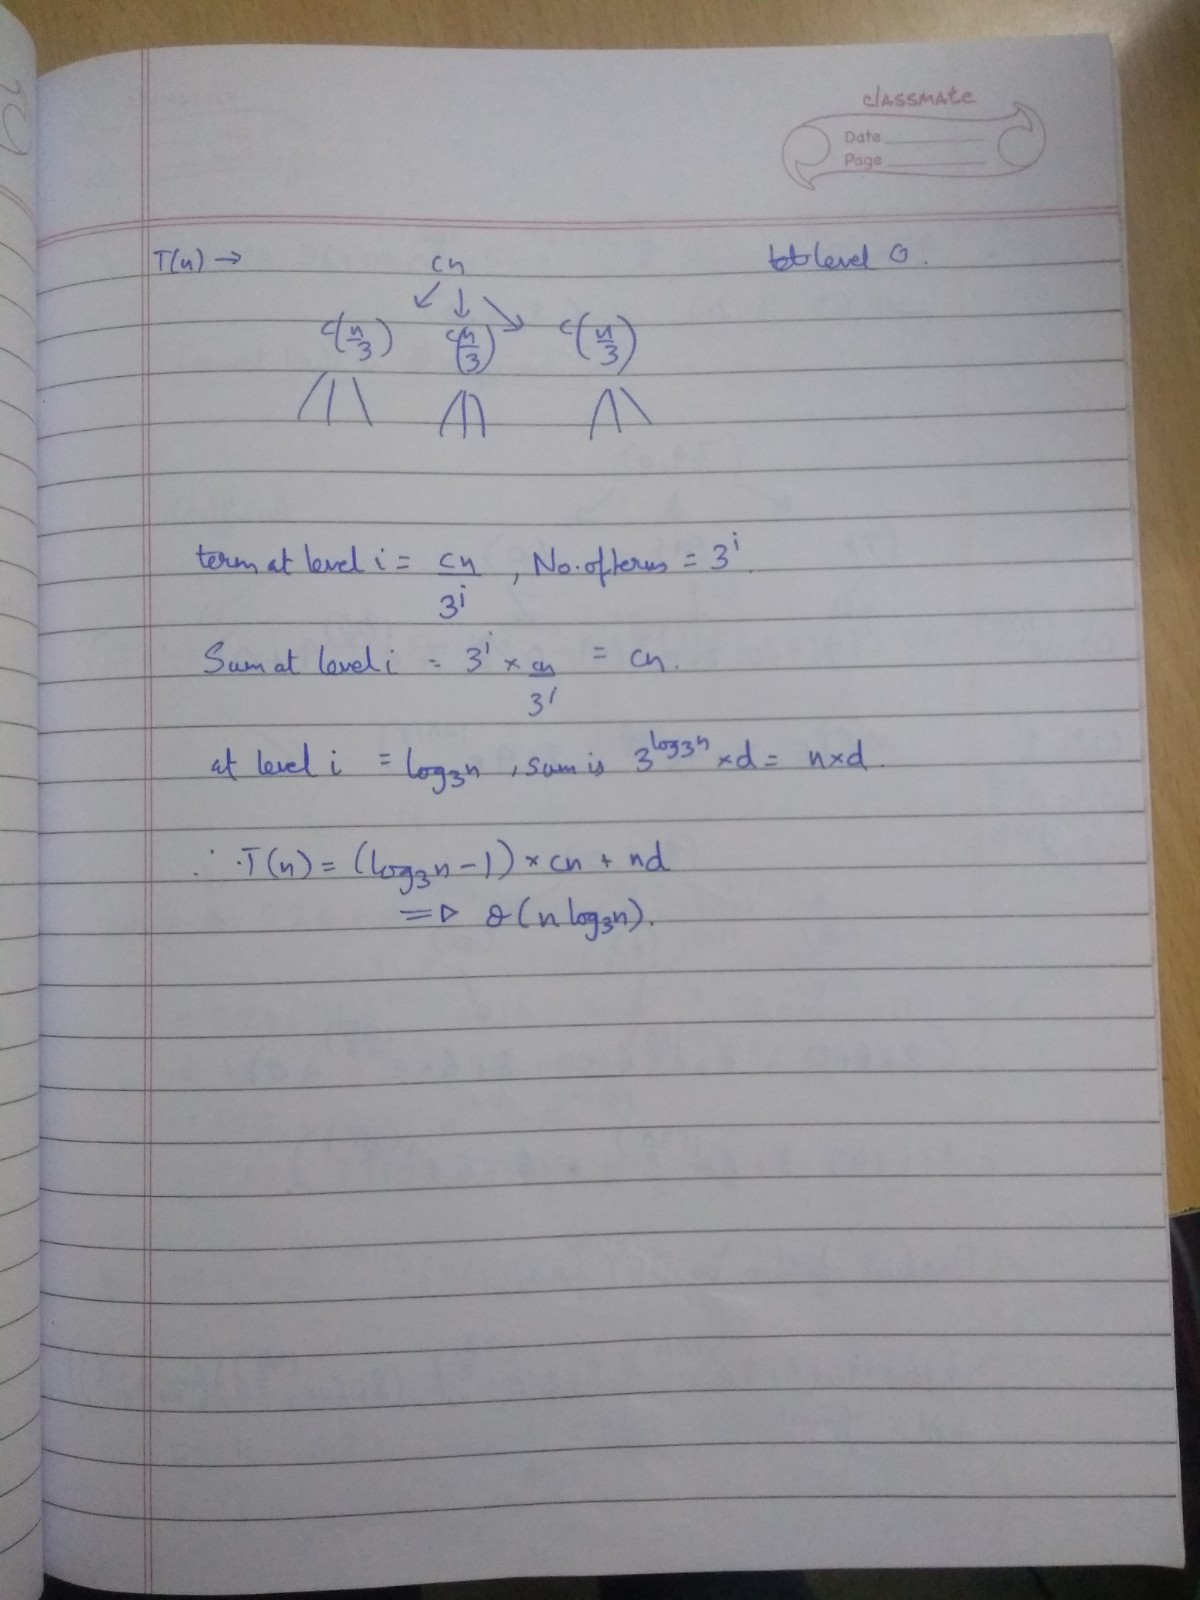 classmate
Date
Page
T(n) → cn level 0.
c(n/3) c(n/3) c(n/3)
term at level i = cn/3^i , No. of terms = 3^i.
Sum at level i = 3^i × cn/3^i = cn.
at level i = log₃n , sum is 3^log₃n × d = n×d.
∴ T(n) = (log₃n - 1) × cn + nd
=> θ(n log₃n).